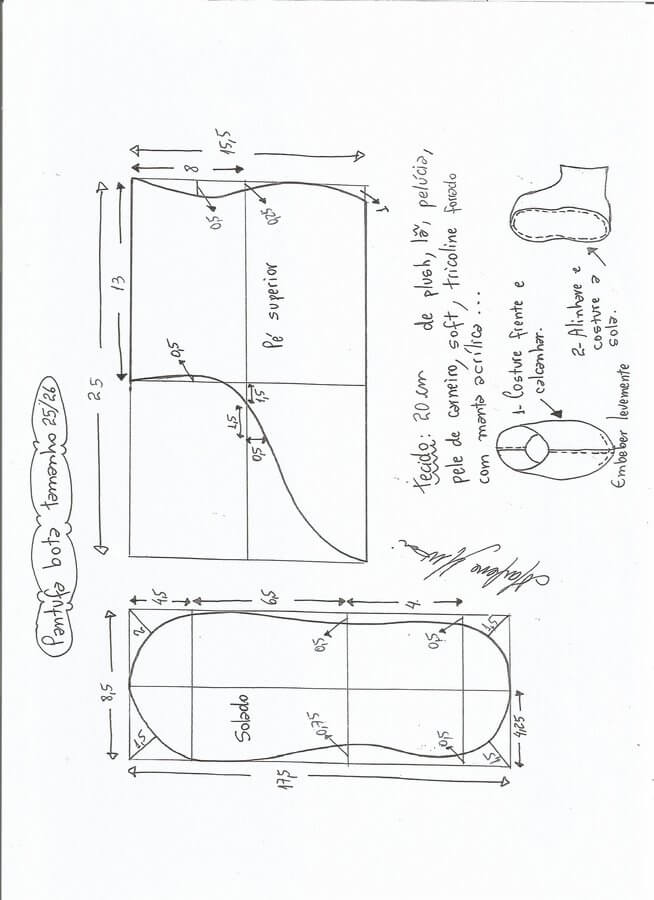 Pantufa bota tamanho 25/26
25
13
15,5
8
0,5
0,25
1
Pé superior
0,5
1,5
4,5
0,5
8,5
4,5
6,5
4
2
1,5
Solado
0,5
0,5
1,5
0,75
0,5
1,5
4,25
17,5
tecido: 20 cm de plush, lã, pelúcia,
pele de carneiro, soft, tricoline forrado
com manta acrílica ...
1- Costure frente e
calcanhar.
2- Alinhave e
costure a
sola.
Embeber levemente